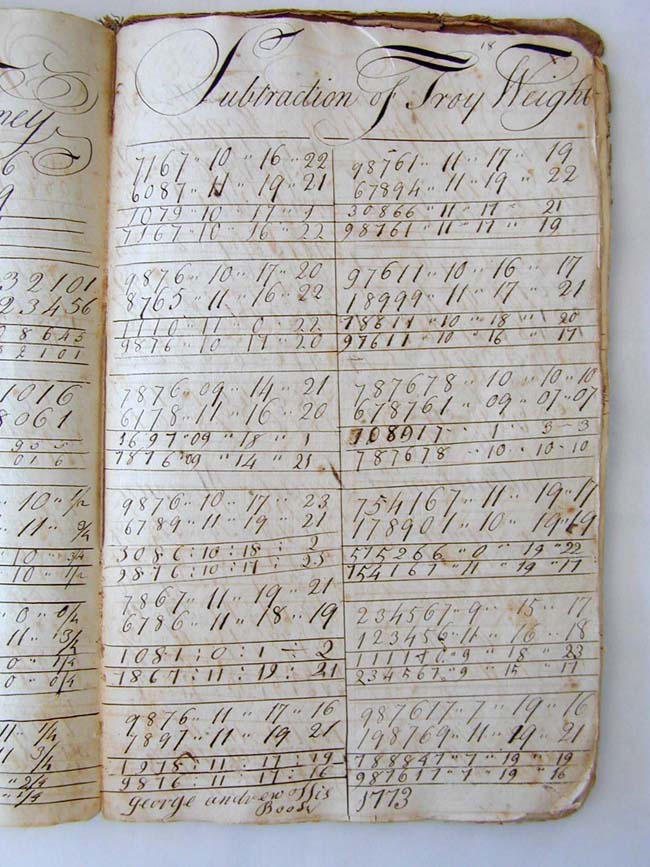 18
Subtraction of Troy Weight
7167 " 10 " 16 " 22
6087 " 11 " 19 " 21
1079 " 10 " 17 " 1
7167 " 10 " 16 " 22
9876 " 10 " 17 " 20
8765 " 11 " 16 " 22
1110 " 11 " 0 " 22
9876 " 10 " 17 " 20
7876 " 09 " 14 " 21
6178 " 11 " 16 " 20
1697 " 09 " 18 " 1
7876 " 09 " 14 " 21
9876 " 10 " 17 " 23
6789 " 11 " 19 " 21
3086 : 10 : 18 : 2
9876 : 10 : 17 : 23
7867 " 11 " 19 " 21
6786 " 11 " 18 " 19
1081 : 0 : 1 - 2
7867 : 11 : 19 : 21
9876 " 11 " 17 " 16
7897 " 11 " 19 " 21
9876 : 11 : 17 : 16
george andrew His
Book
98761 " 11 " 17 " 19
67894 " 11 " 19 " 22
30866 " 11 " 17 " 21
98761 " 11 " 17 " 19
97611 " 10 " 16 " 17
18999 " 11 " 17 " 21
78611 " 10 " 18 " 20
97611 " 10 " 16 " 17
787678 " 10 " 10 " 10
678761 " 09 " 07 " 07
108917 " 1 " 3 - 3
787678 " 10 - 10 - 10
754167 " 11 " 19 " 17
178901 " 10 " 19 " 19
575266 " 0 " 19 " 22
754167 " 11 " 19 " 17
234567 " 9 " 15 " 17
123456 " 11 " 16 " 18
234567 " 9 " 15 " 17
987617 " 7 " 19 " 16
198769 " 11 " 19 " 21
788847 " 7 " 19 " 19
987617 " 7 " 19 " 16
1773